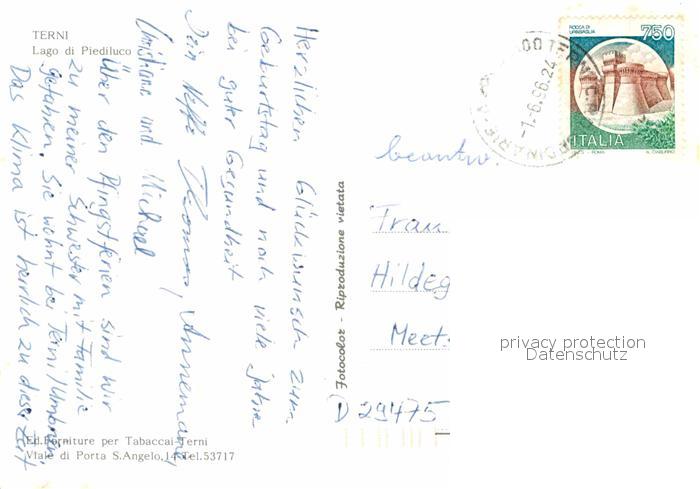 TERNI
Lago di Piediluco
Herzlichen Glückwunsch zum
Geburtstag und noch viele Jahre
bei guter Gesundheit
Dein Neffe Thomas, Annemarie,
Christiane und Michael
Über den Pfingstferien sind wir
zu meiner Schwester mit Familie
gefahren. Sie wohnt bei Terni/Umbrien.
Das Klima ist herrlich zu dieser Zeit
Ed. Forniture per Tabaccai-Terni
Viale di Porta S.Angelo,14-Tel.53717
Fotocolor - Riproduzione vietata
ROCCA DI
URBISAGLIA
750
ITALIA
-1.-6.96.24
beantw.
Frau
Hildeg
Meet
D 29475
privacy protection
Datenschutz